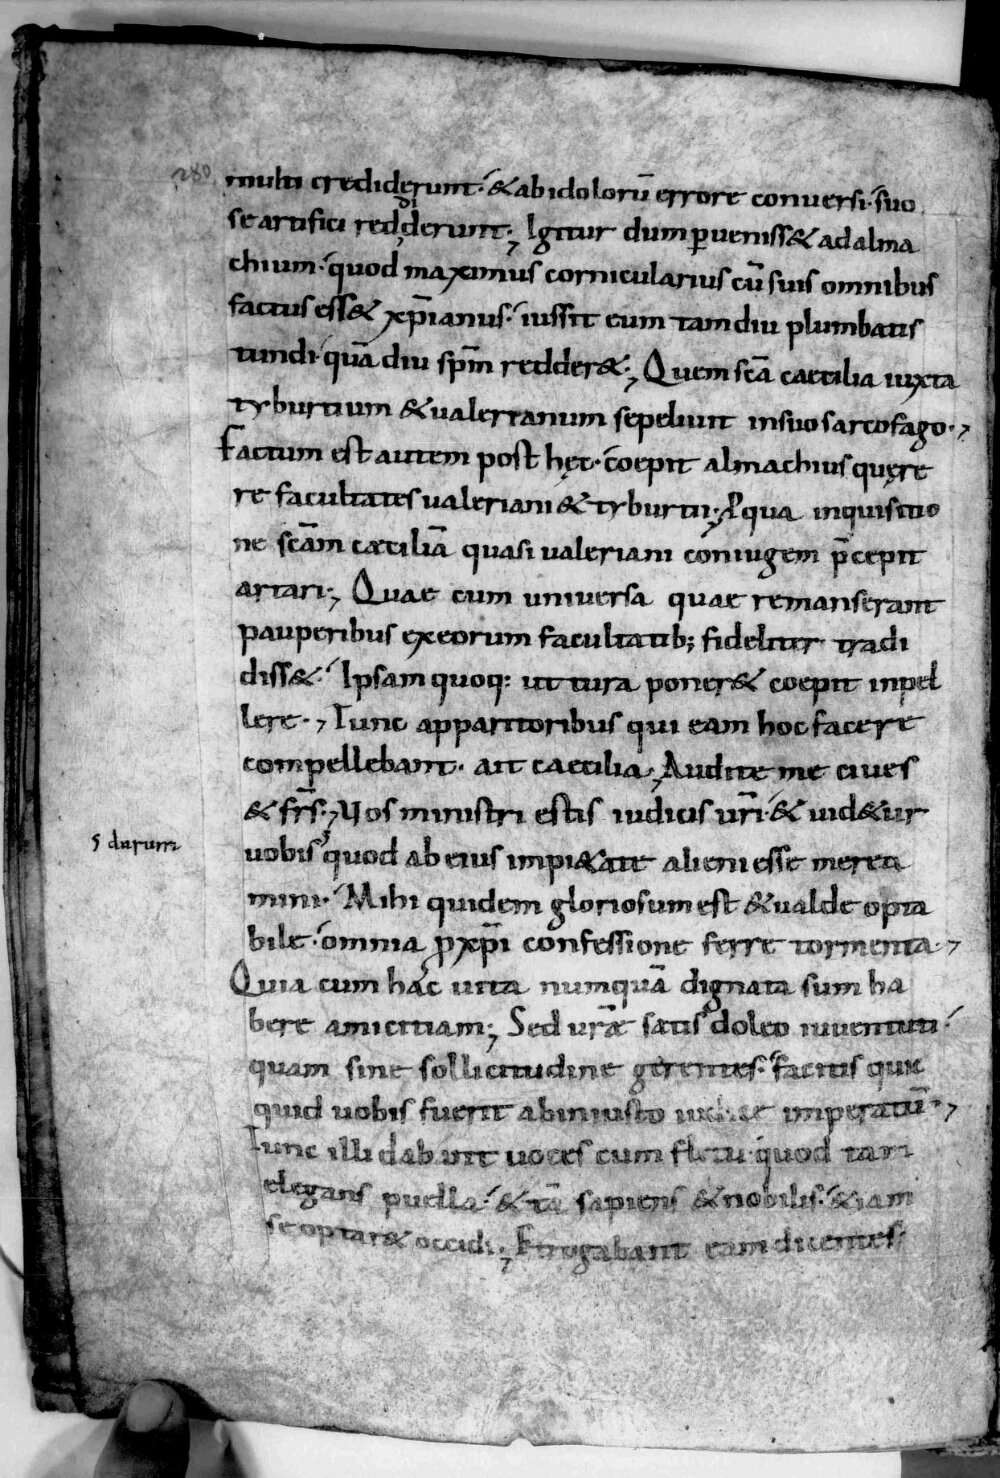 280
multi crediderunt· & ab idolorū errore conuersi· suo
se artifici reddiderunt; Igitur dum perueniss& ad alma
chium· quod maximus cornicularius cū suis omnibus
factus ess& xp̄ianus· iussit eum tam diu plumbatis
tundi· quā diu sp̄m redder&; Quem sc̄a caecilia iuxta
tyburtium & ualerianum sepeliuit in suo sarcofago·,
Factum est autem post hęc· coepit almachius quęre
re facultates ualeriani & tyburtii; A qua inquisitio
ne sc̄am cæciliā quasi ualeriani coniugem p̄cepit
artari; Quae cum uniuersa quae remanserant
pauperibus ex eorum facultatib; fideliter tradi
diss&· Ipsam quoq: ut tura poner& coepit inpel
lere·, Tunc apparitoribus qui eam hoc facere
compellebant· ait caecilia; Audite me ciues
& fr̄s; Vos ministri estis iudicis ur̄i· & uid&ur
s durum
uobis quod ab eius impi&ate alieni esse merea
mini· Mihi quidem gloriosum est & ualde opta
bile· omnia p xp̄i confessione ferre tormenta·,
Quia cum hac uita numquā dignata sum ha
bere amicitiam; Sed ur̄æ satis doleo iuuentuti·
quam sine sollicitudine gerentes· facitis quic
quid uobis fuerit ab iniusto iudice imperatū·,
Tunc illi dabant uoces cum fletu· quod tam
elegans puella· & tā sapiens & nobilis· & iam
se optar& occidi; Et rogabant eam dicentes·